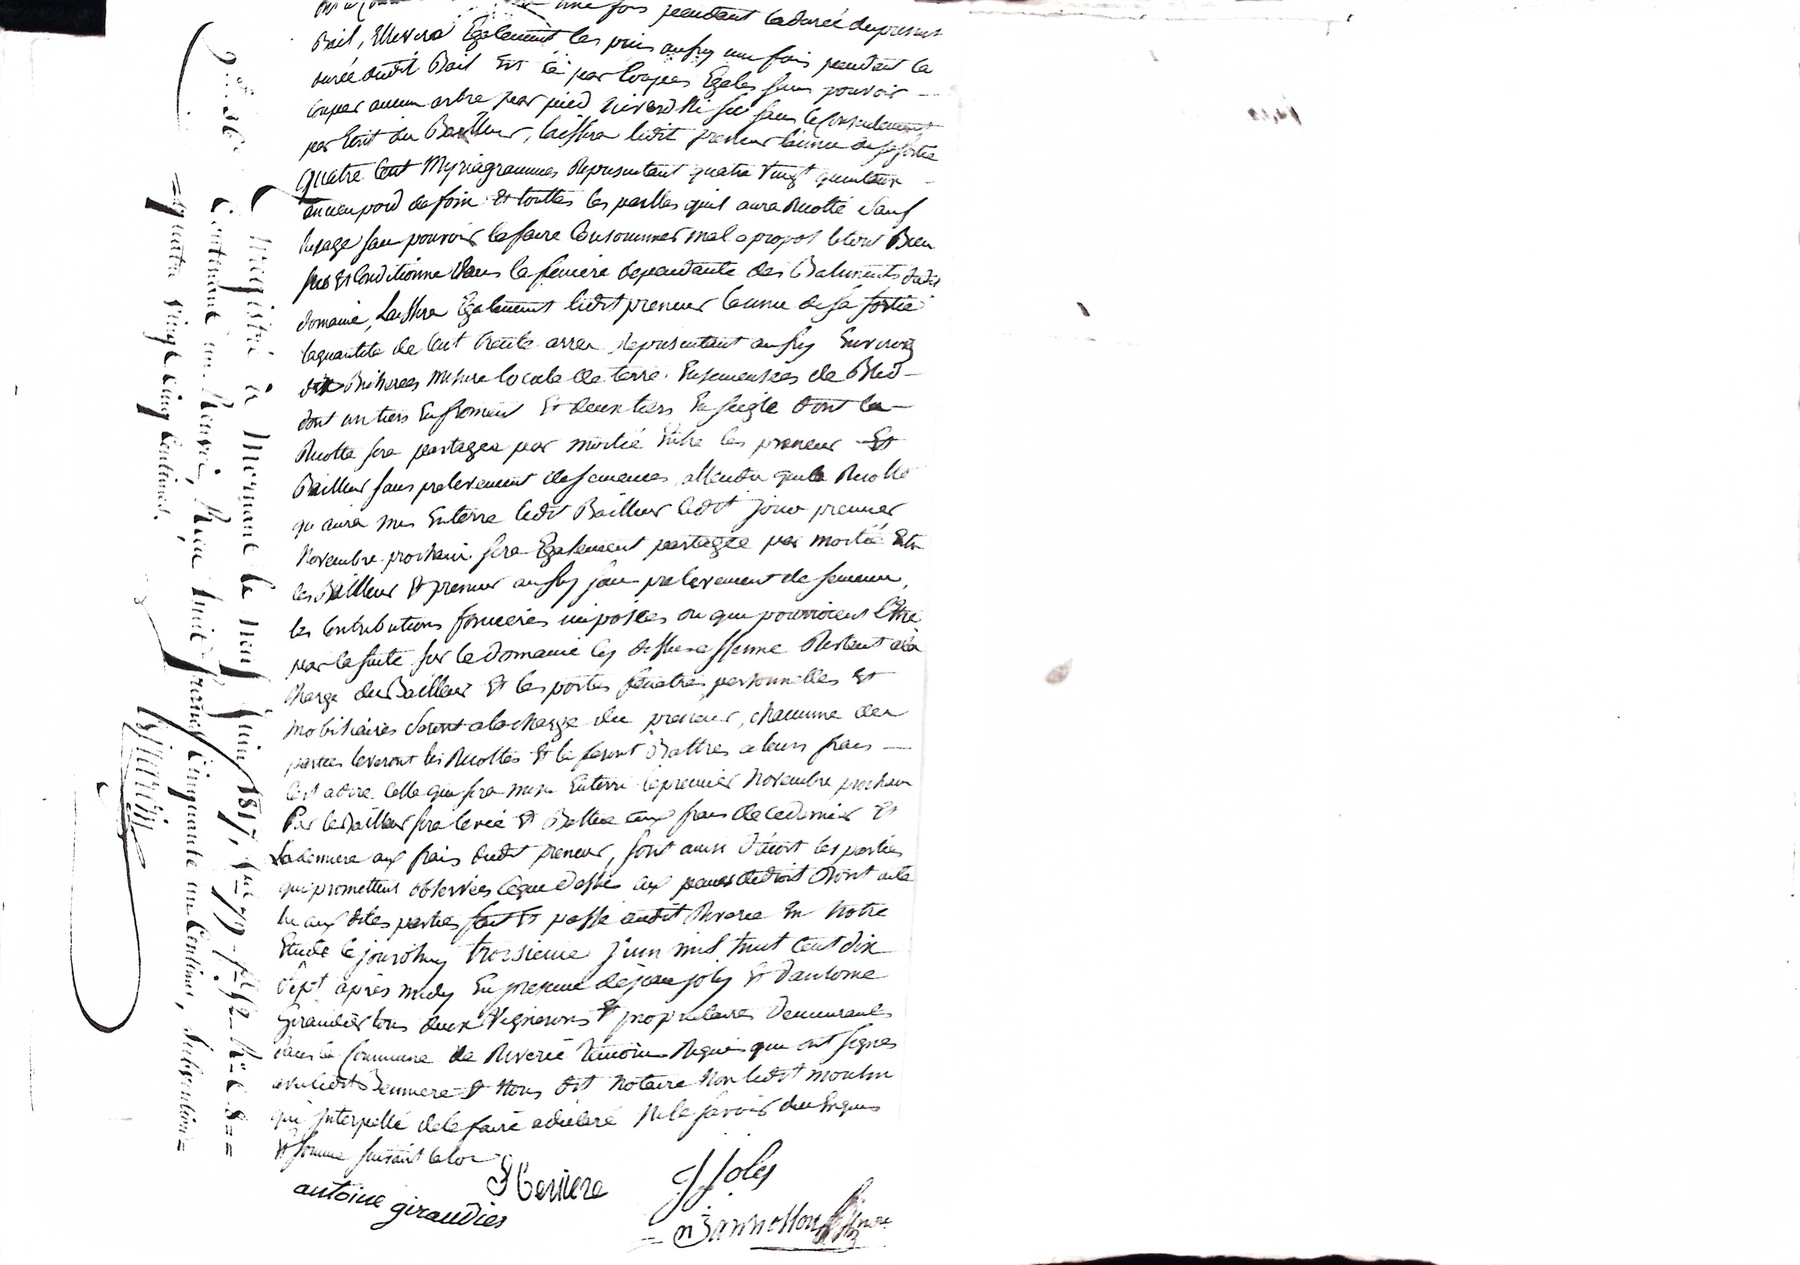 une fois pendant la durée du present
Bail, Elevera Egalement les pins aussy une fois pendant la
durée dudit Bail Et cé par Coupes Egales sans pouvoir
couper aucun arbre par pied ni verd Ni sec sans le Consentement
par Ecrit du Bailleur, laissera ledit preneur l'année de sa sortie
quatre Cent Myriagrammes Representant quatre vingt quintaux
ancien poid de foin Et touttes les pailles quil aura Recolté sauf
lusage sans pouvoir les faire Consommer mal a propos le tout Bien
sec Et Conditionné dans la feniere dependante des Batiments dudit
domaine, Laissera Egalement ledit preneur lannée de sa sortie
la quantité de Cent trente ares Representant aussy Environ
dix Bicherees mesure locale de terre Ensemensées de Bled
dont un tiers En froment Et deux tiers En seigle dont la
Recolte sera partagée par moitié Entre les preneur Et
Bailleur sans prelevement de semences, attendu que la Recolte
qu aura mis En terre ledit Bailleur ledit jour premier
Novembre prochain sera Egalement partagée par moitié Entre
les Bailleur Et preneur aussy sans prelevement de semence,
les Contributions foncieres imposées ou qui pourroient Etre
par la suite sur le Domaine Cy dessus affermé Restent a la
charge du Bailleur Et les portes fenetres personnelles Et
mobiliaires seront a la charge du preneur, chacune des
parties leveront les Recoltes Et le feront Battres a leurs frais
C'est a dire Celle qui sera mise En terre le premier Novembre prochain
Par le Bailleur sera levée Et Battue aux frais de ce dernier Et
La derniere aux frais dudit preneur, sont ainsi d'acort les parties
qui promettent observer Ceque dessus aux peines de droit Dont acte
lu aux dites parties fait Et passé audit Riverie En Notre
Etude le jourdhuy troisieme juin mil huit Cent dix
sept après midy En presence de jean joly Et dantoine
Giraudier tous deux Vignerons Et proprietaires Demeurants
dans la Commune de Riverie temoins Requis qui ont signés
avec ledit Et Nous dit Notaire Non ledit moulin
qui Interpellé de le faire a declaré Ne le savoir de ce Enquis
Et sommé suivant la loi
antoine giraudier
J Joly
Enregistré à Mornant le neuf juin 1817,
Contenant un Renvoi, Reçu huit francs Cinquante un Centimes, Subvention
quatre vingt Cinq Centimes.